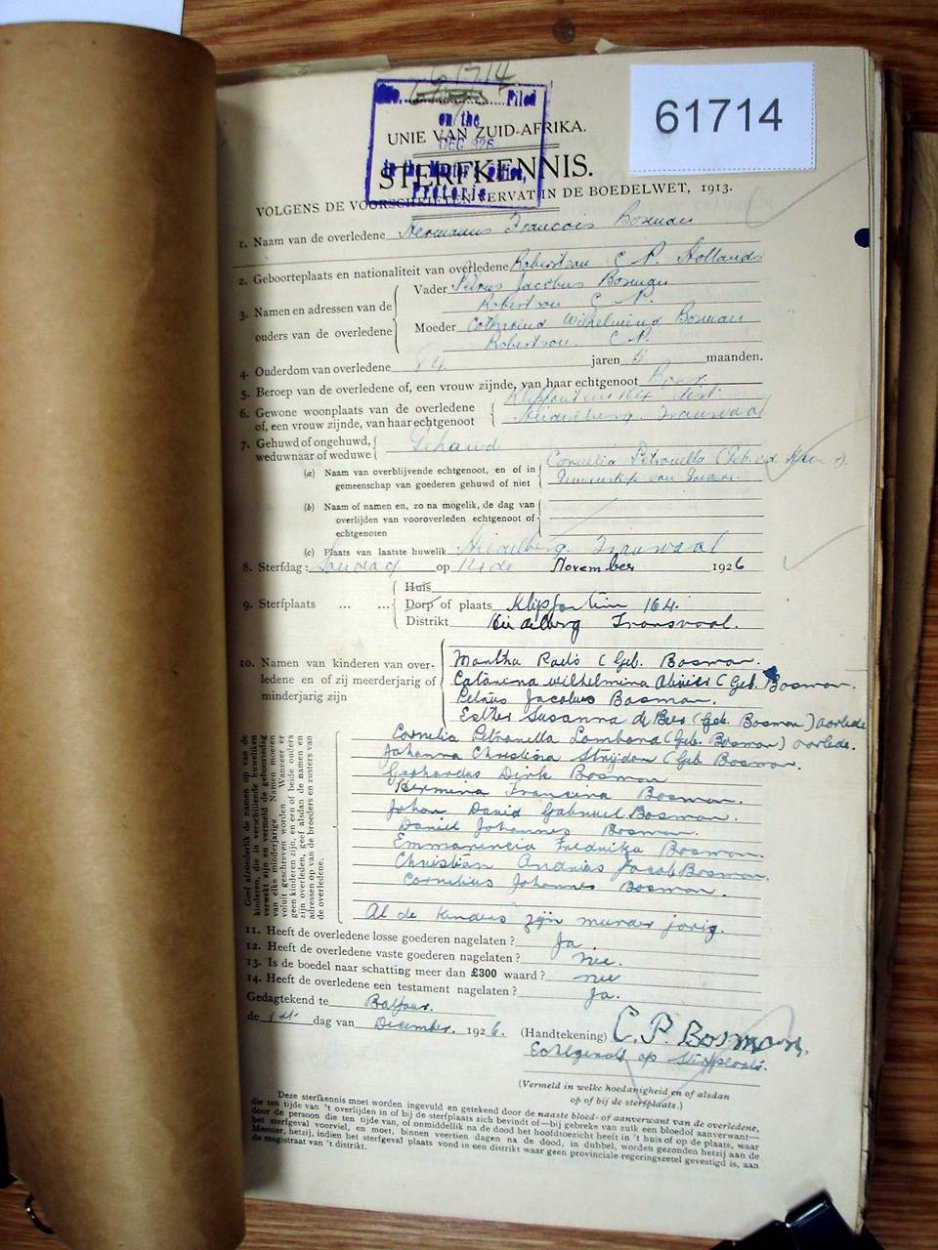 61714
61714
No. Filed
on the
DEC 1926
in the Master's Office,
Pretoria
UNIE VAN ZUID-AFRIKA.
STERFKENNIS.
VOLGENS DE VOORSCHRIFTEN VERVAT IN DE BOEDELWET, 1913.
1. Naam van de overledene Hermanus Francois Bosman
2. Geboorteplaats en nationaliteit van overledene Robertson C. P. Hollands
3. Namen en adressen van de ouders van de overledene
Vader Petrus Jacobus Bosman
Robertson C. P.
Moeder Catharina Wilhelmina Bosman
Robertson C. P.
4. Ouderdom van overledene 84 jaren 5 maanden.
5. Beroep van de overledene of, een vrouw zijnde, van haar echtgenoot
6. Gewone woonplaats van de overledene of, een vrouw zijnde, van haar echtgenoot
Klipfontein Dist
Heidelberg Transvaal
7. Gehuwd of ongehuwd, weduwnaar of weduwe Gehuud
(a) Naam van overblijvende echtgenoot, en of in gemeenschap van goederen gehuwd of niet
Cornelia Petronella (Geb.
(b) Naam of namen en, zo na mogelik, de dag van overlijden van vooroverleden echtgenoot of echtgenoten
(c) Plaats van laatste huwelik Heidelberg Transvaal
8. Sterfdag: Sondag op 14de November 1926
9. Sterfplaats ... ...
Huis
Dorp of plaats Klipfontein 164.
Distrikt Heidelberg Transvaal.
10. Namen van kinderen van overledene en of zij meerderjarig of minderjarig zijn
Martha (Geb. Bosman.
Catarina Wilhelmina Olivier (Geb. Bosman.
Petrus Jacobus Bosman.
Esther Susanna de Beer (Geb. Bosman) oorlede
Cornelia Petronella Lombard (Geb. Bosman) oorlede.
Johanna Christina Strijdom (Geb Bosman.
Gerhardus Dirk Bosman
Hermina Francina Bosman.
Johan David Gabriel Bosman.
Daniel Johannes Bosman.
Emmarencia Fredrika Bosman.
Christian Andries Jacob Bosman.
Cornelius Johannes Bosman.
Al de kinders zijn meerder jarig.
Geef afzonderlik de namen op van de
kinderen, die in verschillende huweliken
verwekt zijn en vermeld de geboortedag
van elke minderjarige. Namen moeten
voluit geschreven worden. Wanneer er
geen kinderen zijn, en een of beide ouders
zijn overleden, geef alsdan de namen en
adressen op van de broeders en zusters van
de overledene.
11. Heeft de overledene losse goederen nagelaten? Ja.
12. Heeft de overledene vaste goederen nagelaten? nee.
13. Is de boedel naar schatting meer dan £300 waard? nee
14. Heeft de overledene een testament nagelaten? Ja.
Gedagtekend te Balfour.
de 1st dag van December. 1926.
(Handtekening) C. P. Bosman.
Echtgenoot op sterfplaats.
(Vermeld in welke hoedanigheid en of alsdan
op of bij de sterfplaats.)
Deze sterfkennis moet worden ingevuld en getekend door de naaste bloed- of aanverwant van de overledene,
die ten tijde van 't overlijden in of bij de sterfplaats zich bevindt of—bij gebreke van zulk een bloedof aanverwant—
door de persoon die ten tijde van, of onmiddelik na de dood het hoofdtoezicht heeft in 't huis of op de plaats, waar
het sterfgeval voorviel, en moet, binnen veertien dagen na de dood, in dubbel, worden gezonden hetzij aan de
Meester, hetzij, indien het sterfgeval plaats vond in een distrikt waar geen provinciale regeringszetel gevestigd is, aan
de magistraat van 't distrikt.